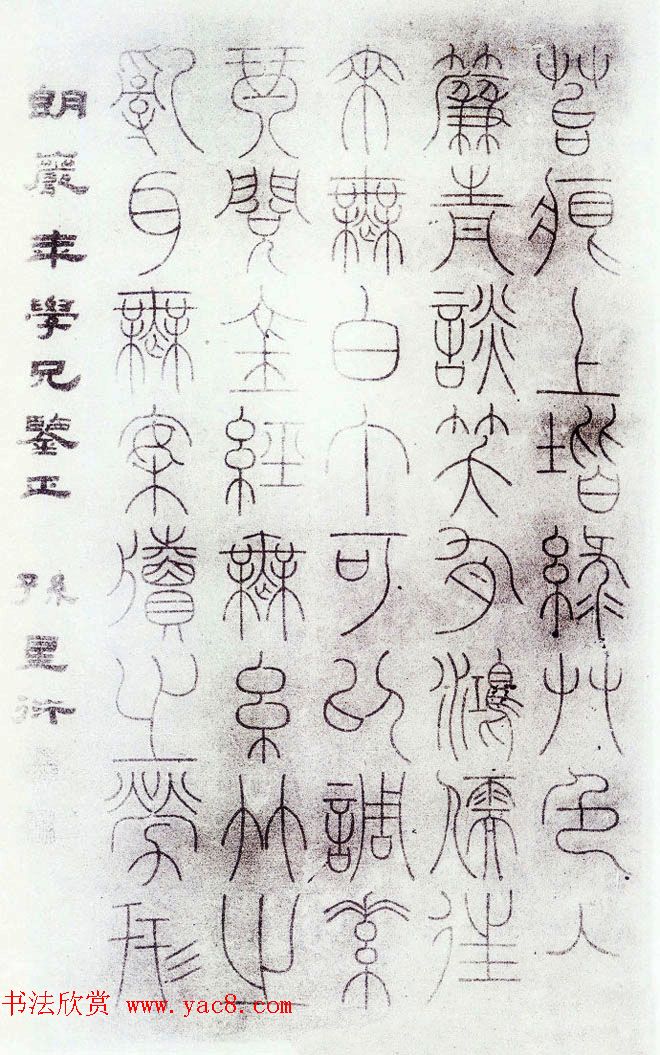 苔痕上階綠艸色入
簾青談笑有鴻儒往
來無白丁可以調素
琴閱金經無糸竹之
亂耳無案牘之勞形
朗巖年學兄鑒正 孫星衍
书法欣赏 www.yac8.com